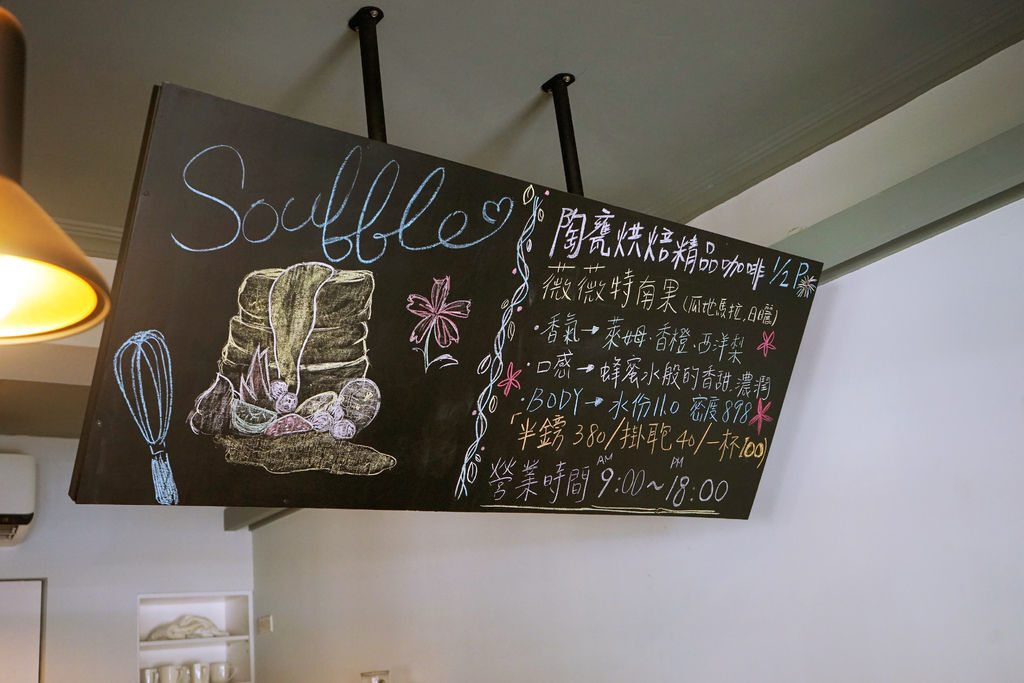 Souffle
陶甕烘焙精品咖啡 1/2 P
薇薇特南果(瓜地馬拉,日曬)
·香氣→萊姆·香橙·西洋梨
·口感→蜂蜜水般的香甜.濃潤
·BODY→水份11.0 密度898
「半鎊380/掛耳包40/一杯100」
營業時間 AM 9:00~ PM 18:00